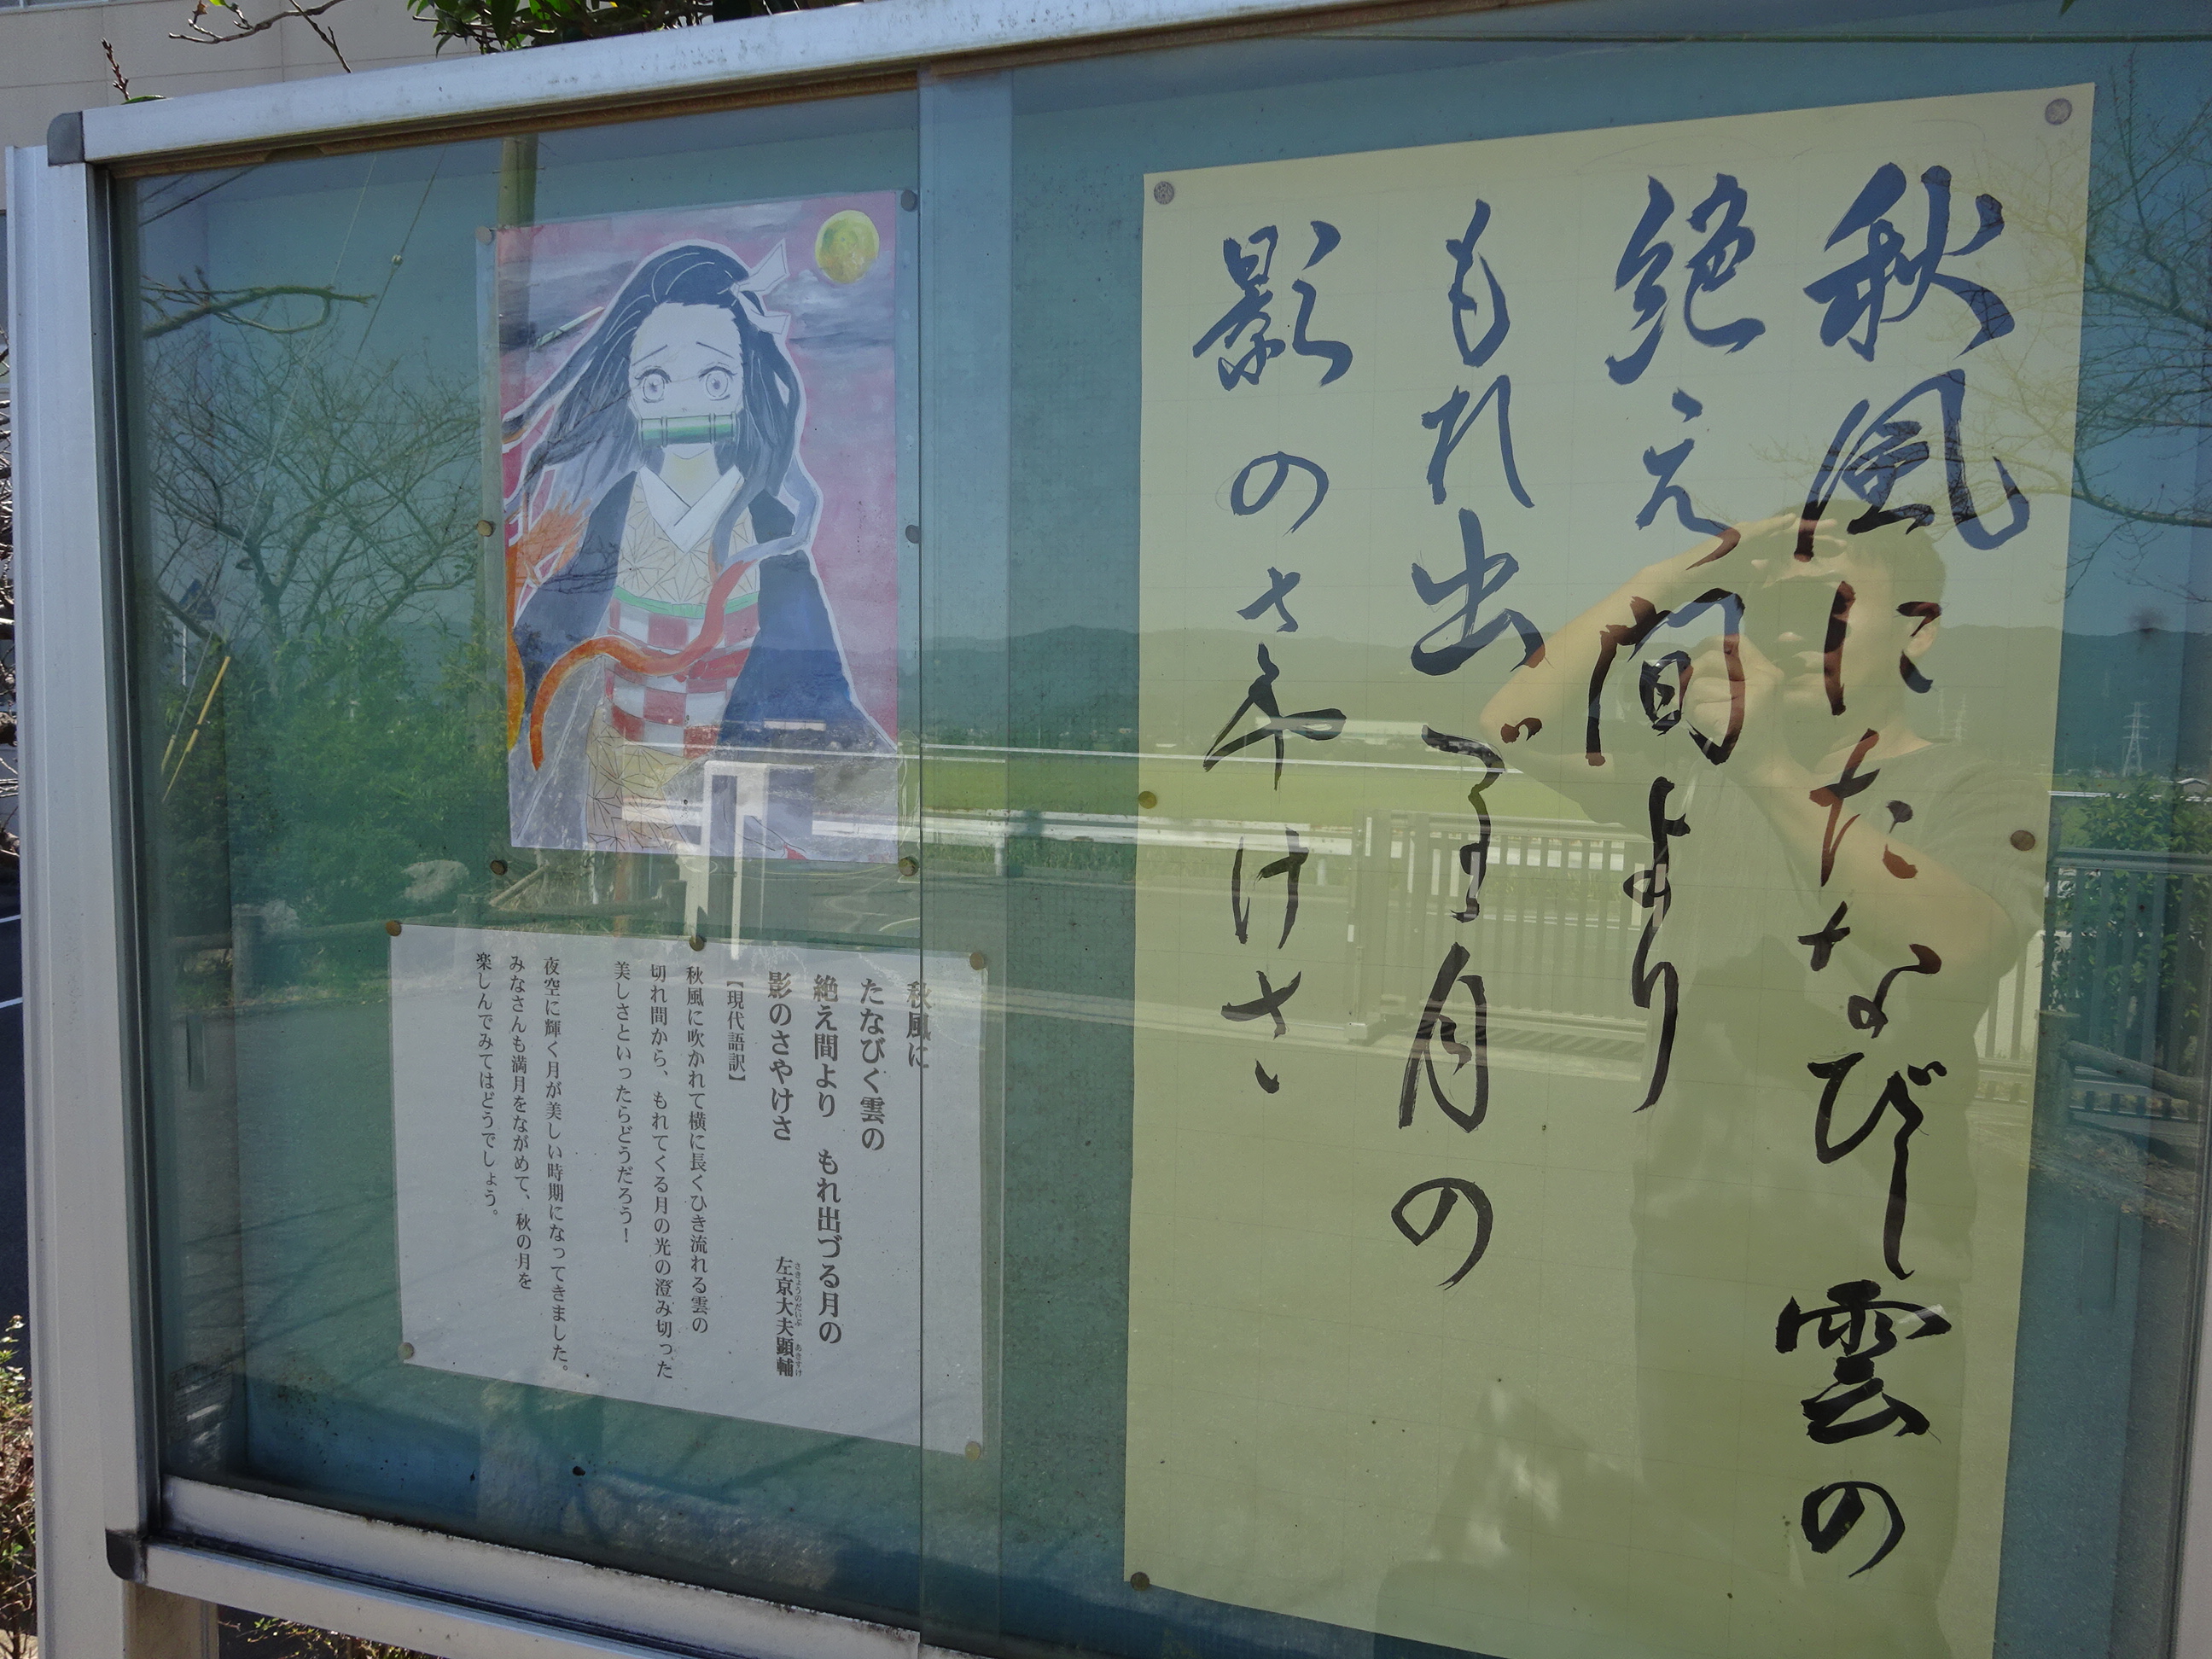 秋風にたなびく雲の
絶え間より
もれ出づる月の
影のさやけさ
秋風に
たなびく雲の
絶え間より　もれ出づる月の
影のさやけさ
左京大夫顕輔
さきょうのだいぶ　あきすけ
【現代語訳】
秋風に吹かれて横に長くひき流れる雲の
切れ間から、もれてくる月の光の澄み切った
美しさといったらどうだろう！
夜空に輝く月が美しい時期になってきました。
みなさんも満月をながめて、秋の月を
楽しんでみてはどうでしょう。